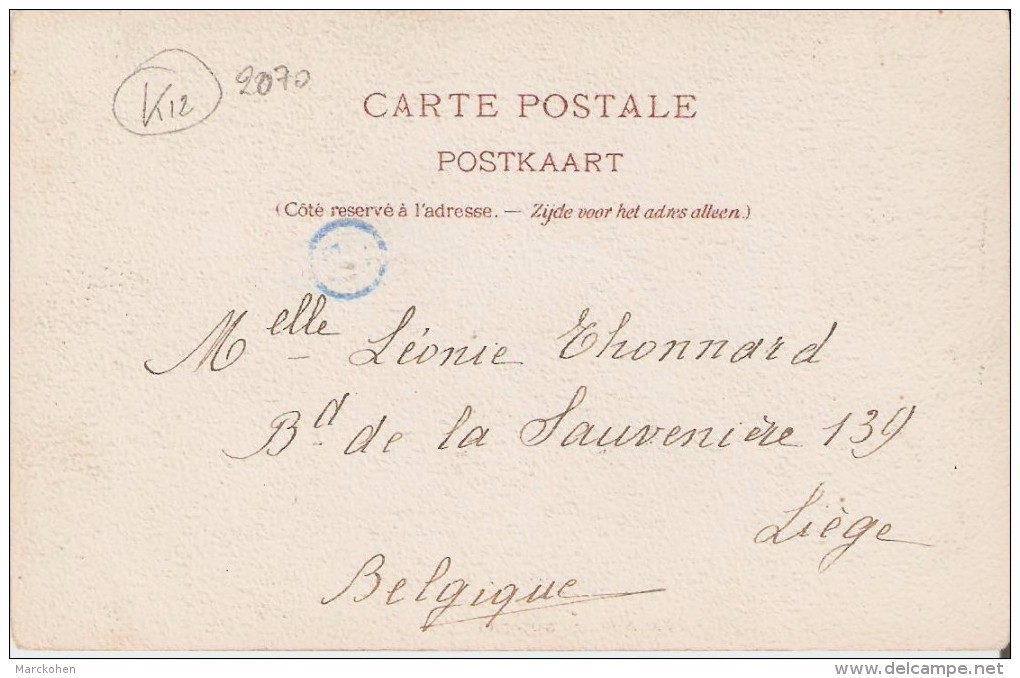 K12 2070
CARTE POSTALE
POSTKAART
(Côté reservé à l'adresse. — Zijde voor het adres alleen.)
Melle Léonie Thonnard
Bd de la Sauvenière 139
Liège
Belgique
Marckohen
www.delcampe.net